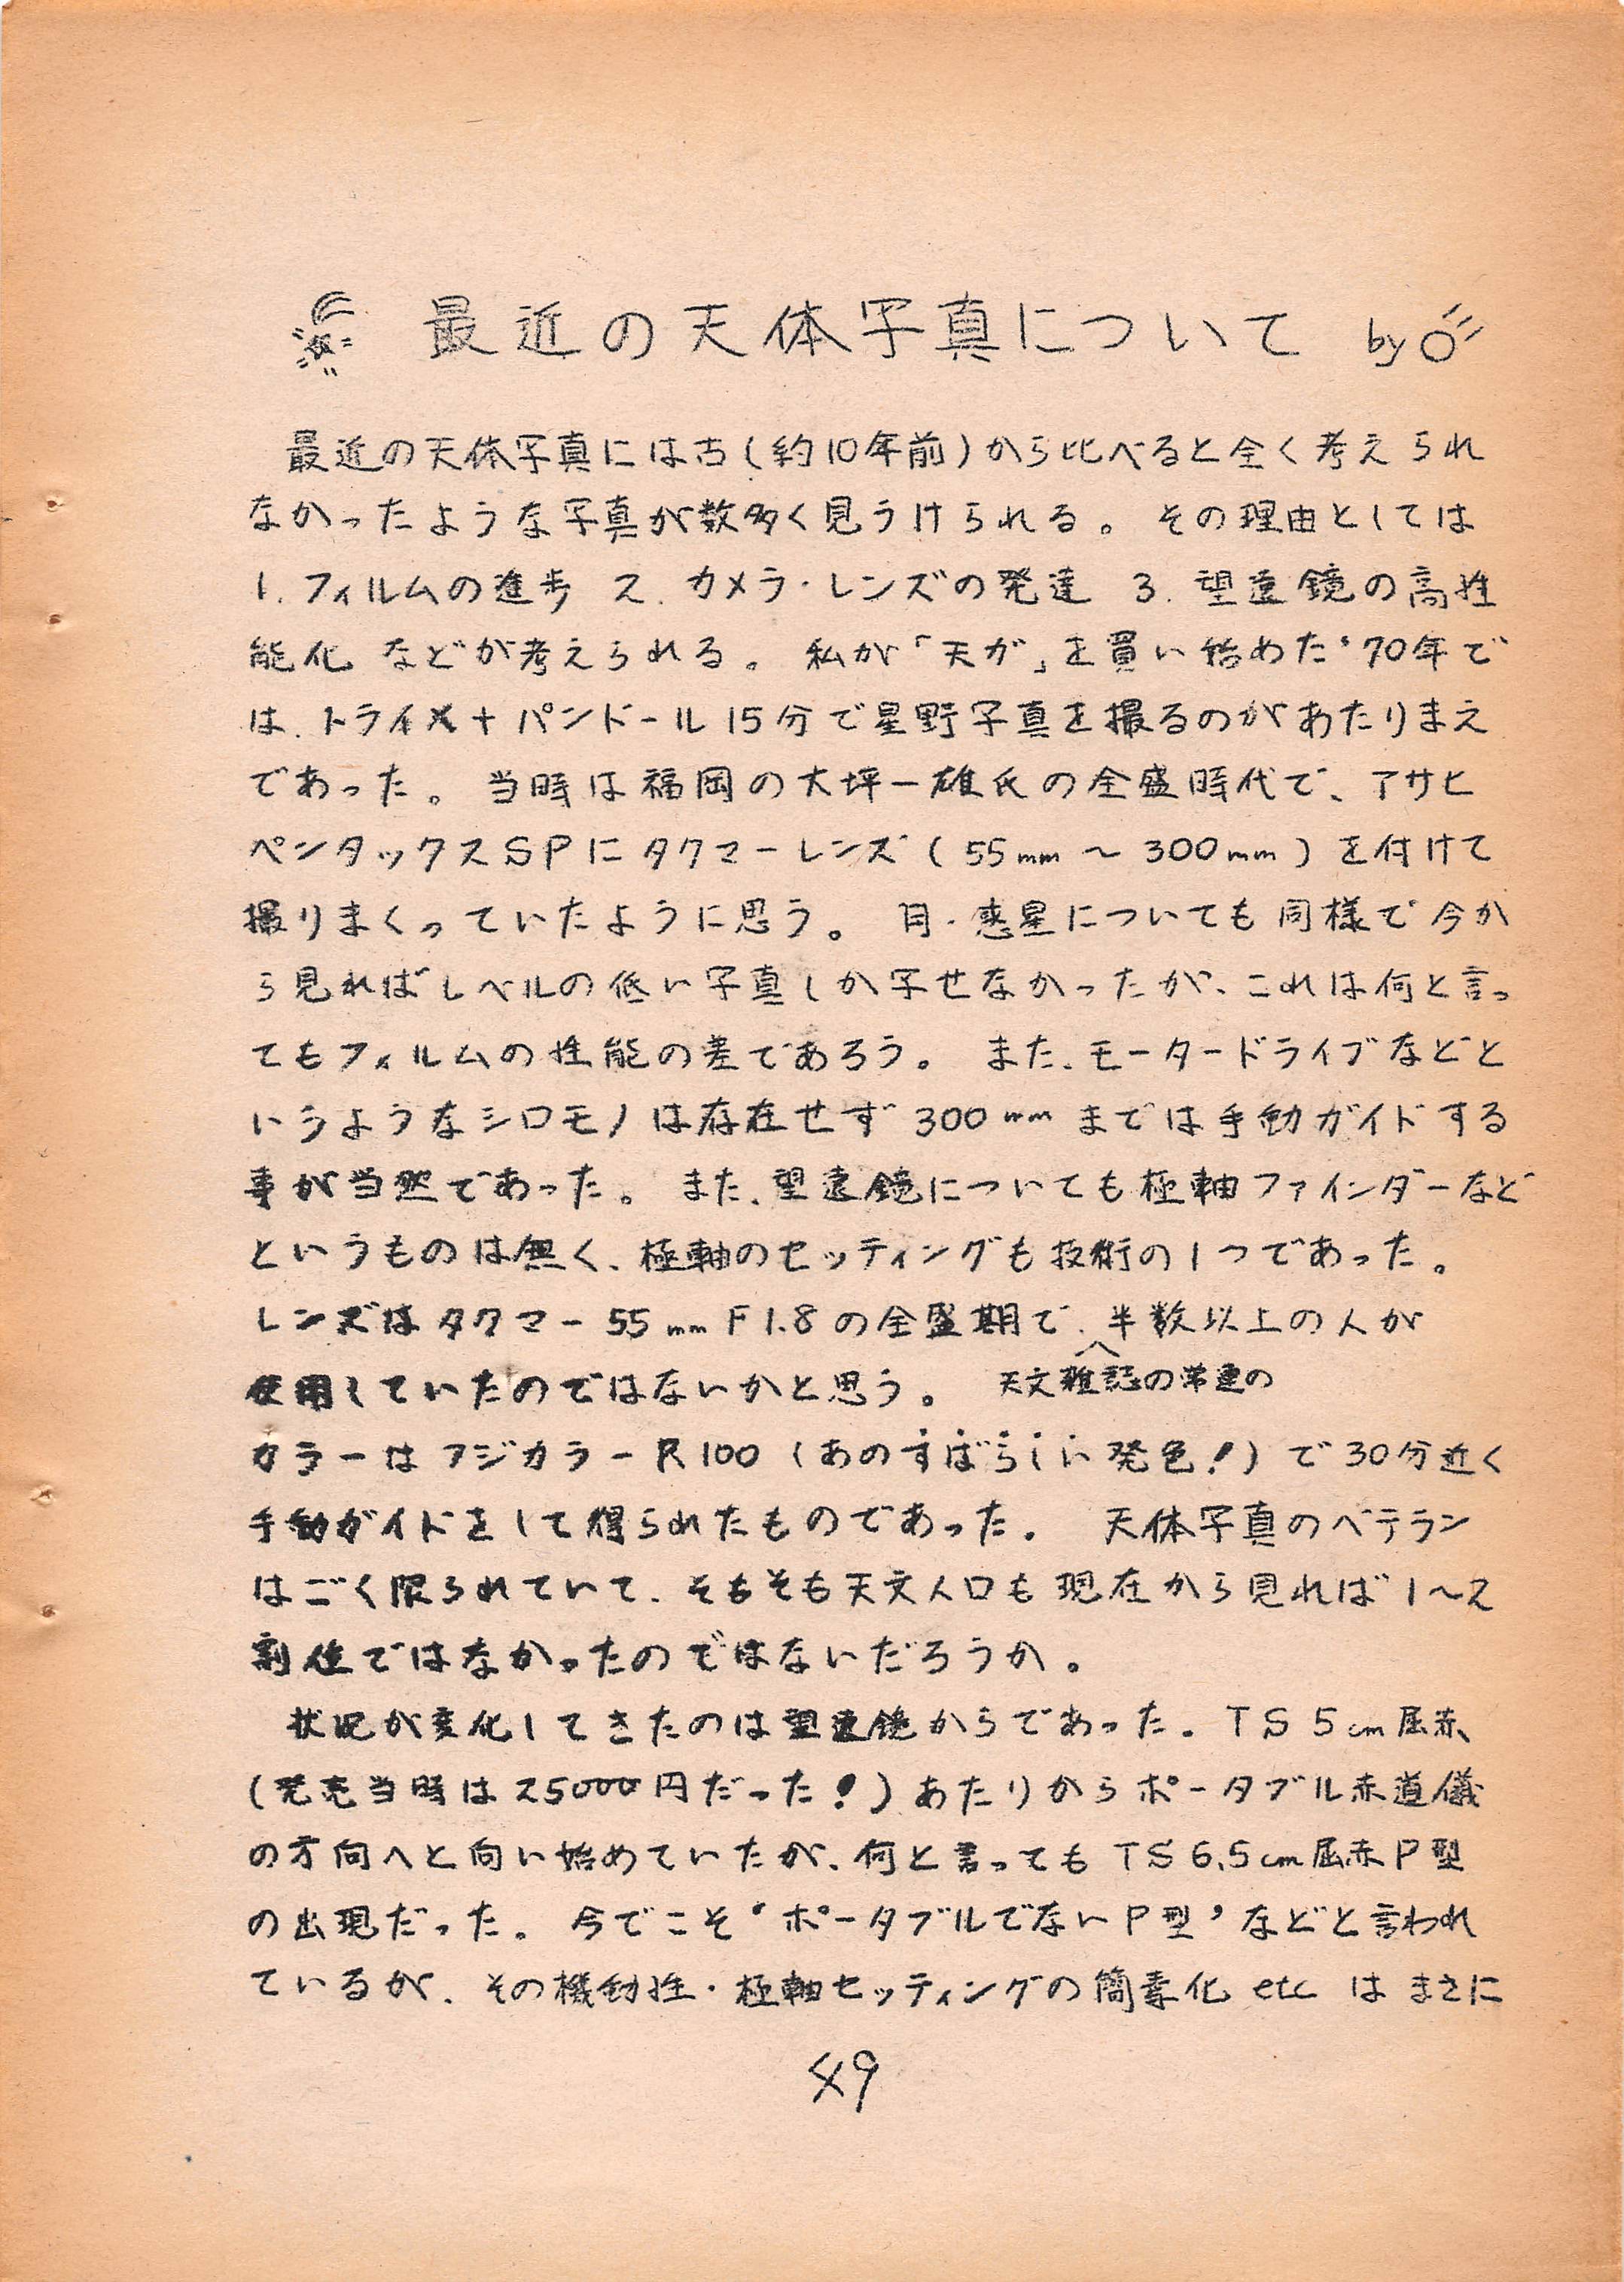 最近の天体写真について by
最近の天体写真には古(約10年前)から比べると全く考えられ
なかったような写真が数多く見うけられる。その理由としては
1. フィルムの進歩 2. カメラ・レンズの発達 3. 望遠鏡の高性
能化 などが考えられる。私が「天ガ」を買い始めた'70年で
は、トライX+パンドール15分で星野写真を撮るのがあたりまえ
であった。当時は福岡の大坪一雄氏の全盛時代で、アサヒ
ペンタックスSPにタクマーレンズ(55mm〜300mm)を付けて
撮りまくっていたように思う。月・惑星についても同様で今か
ら見ればレベルの低い写真しか写せなかったが、これは何と言っ
てもフィルムの性能の差であろう。また、モータードライブなどと
いうようなシロモノは存在せず300mmまでは手動ガイドする
事が当然であった。また、望遠鏡についても極軸ファインダーなど
というものは無く、極軸のセッティングも技術の1つであった。
レンズはタクマー55mm F1.8の全盛期で、半数以上の人が
使用していたのではないかと思う。 天文雑誌の常連の
カラーはフジカラーR100(あのすばらしい発色!)で30分近く
手動ガイドをして得られたものであった。天体写真のベテラン
はごく限られていて、そもそも天文人口も現在から見れば1〜2
割位ではなかったのではないだろうか。
状況が変化してきたのは望遠鏡からであった。TS 5cm屈赤
(発売当時は25000円だった!)あたりからポータブル赤道儀
の方向へと向い始めていたが、何と言ってもTS 6.5cm屈赤P型
の出現だった。今でこそ'ポータブルでないP型'などと言われ
ているが、その機動性・極軸セッティングの簡素化 etc はまさに
49